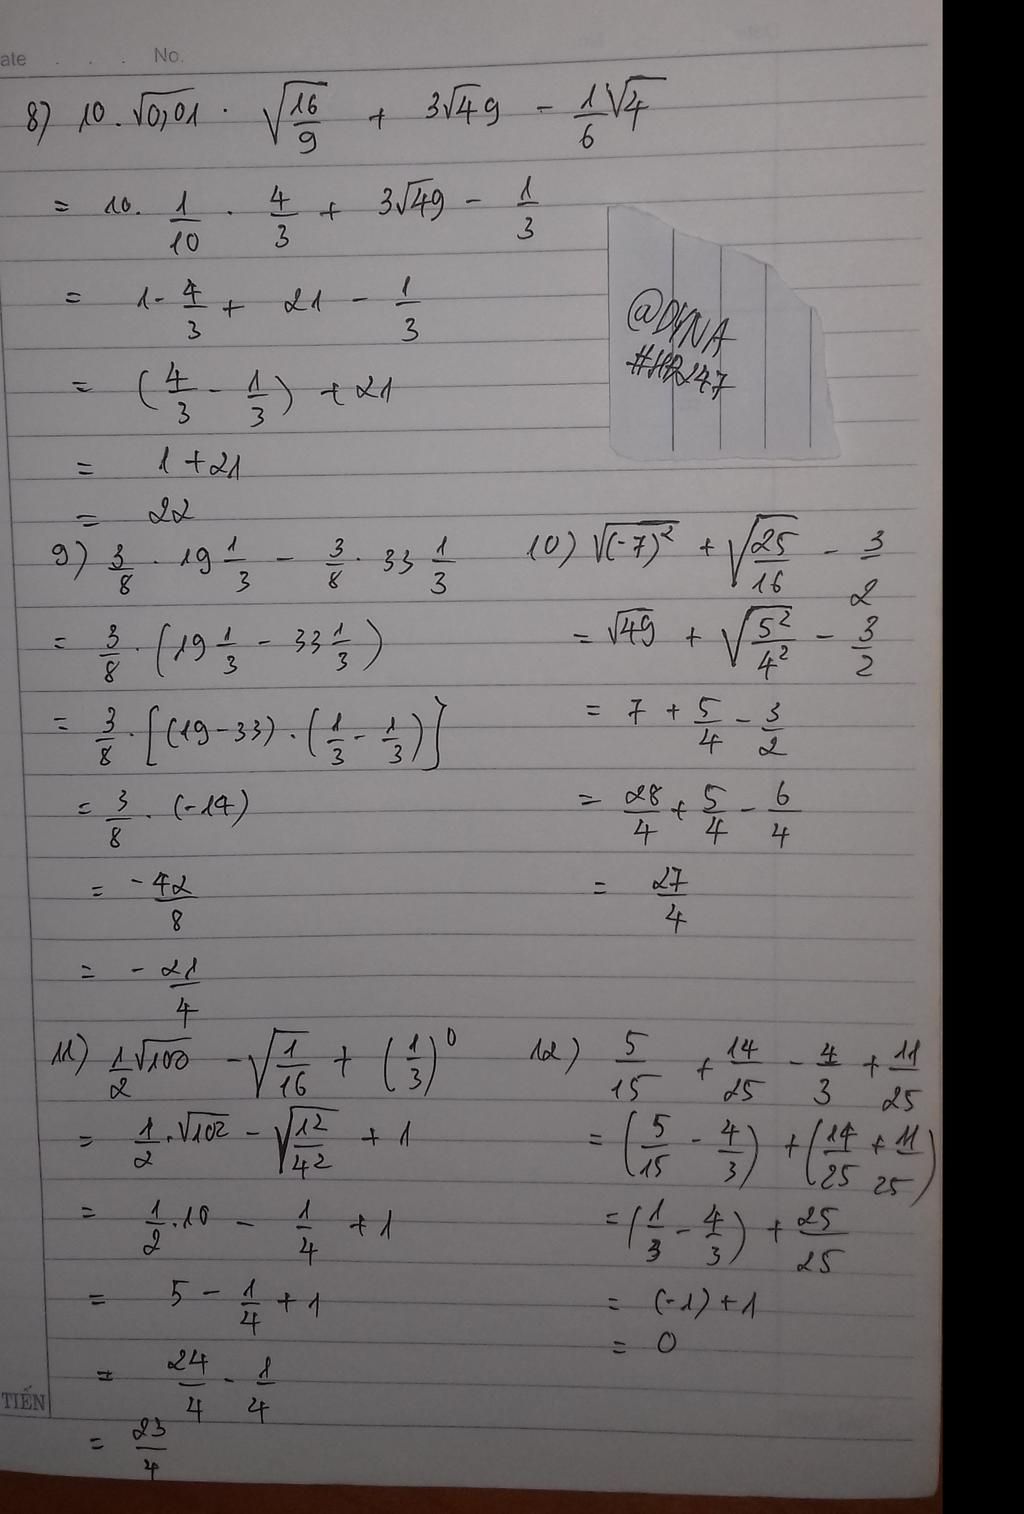 ate . . . No.
8) 10.√0,01 . √(16/9) + 3√49 - 1/6 √4
= 10. 1/10 . 4/3 + 3√49 - 1/3
= 1. 4/3 + 21 - 1/3
= (4/3 - 1/3) + 21
= 1 + 21
= 22
@DYNA
#HR247
9) 3/8 . 19 1/3 - 3/8 . 33 1/3
= 3/8 . (19 1/3 - 33 1/3)
= 3/8 . [(19-33) . (1/3 - 1/3)]
= 3/8 . (-14)
= -42/8
= -21/4
10) √(-7)² + √(25/16) - 3/2
= √49 + √(5²/4²) - 3/2
= 7 + 5/4 - 3/2
= 28/4 + 5/4 - 6/4
= 27/4
11) 1/2 √100 - √(1/16) + (1/3)⁰
= 1/2 . √10² - √(1²/4²) + 1
= 1/2 . 10 - 1/4 + 1
= 5 - 1/4 + 1
= 24/4 - 1/4
= 23/4
12) 5/15 + 14/25 - 4/3 + 11/25
= (5/15 - 4/3) + (14/25 + 11/25)
= (1/3 - 4/3) + 25/25
= (-1) + 1
= 0
TIẾN